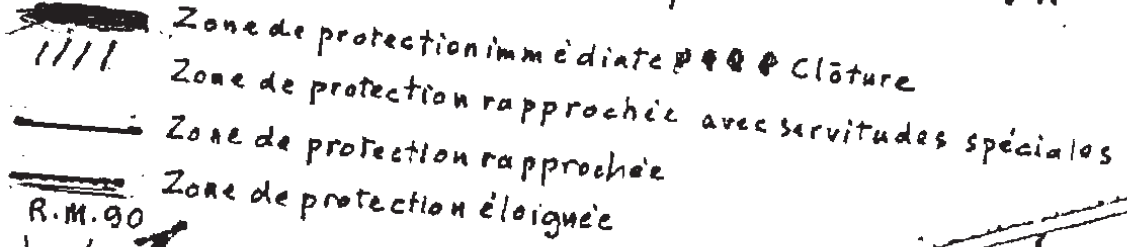 Zone de protection immédiate Clôture
Zone de protection rapprochée avec servitudes spéciales
Zone de protection rapprochée
Zone de protection éloignée
R.M.90